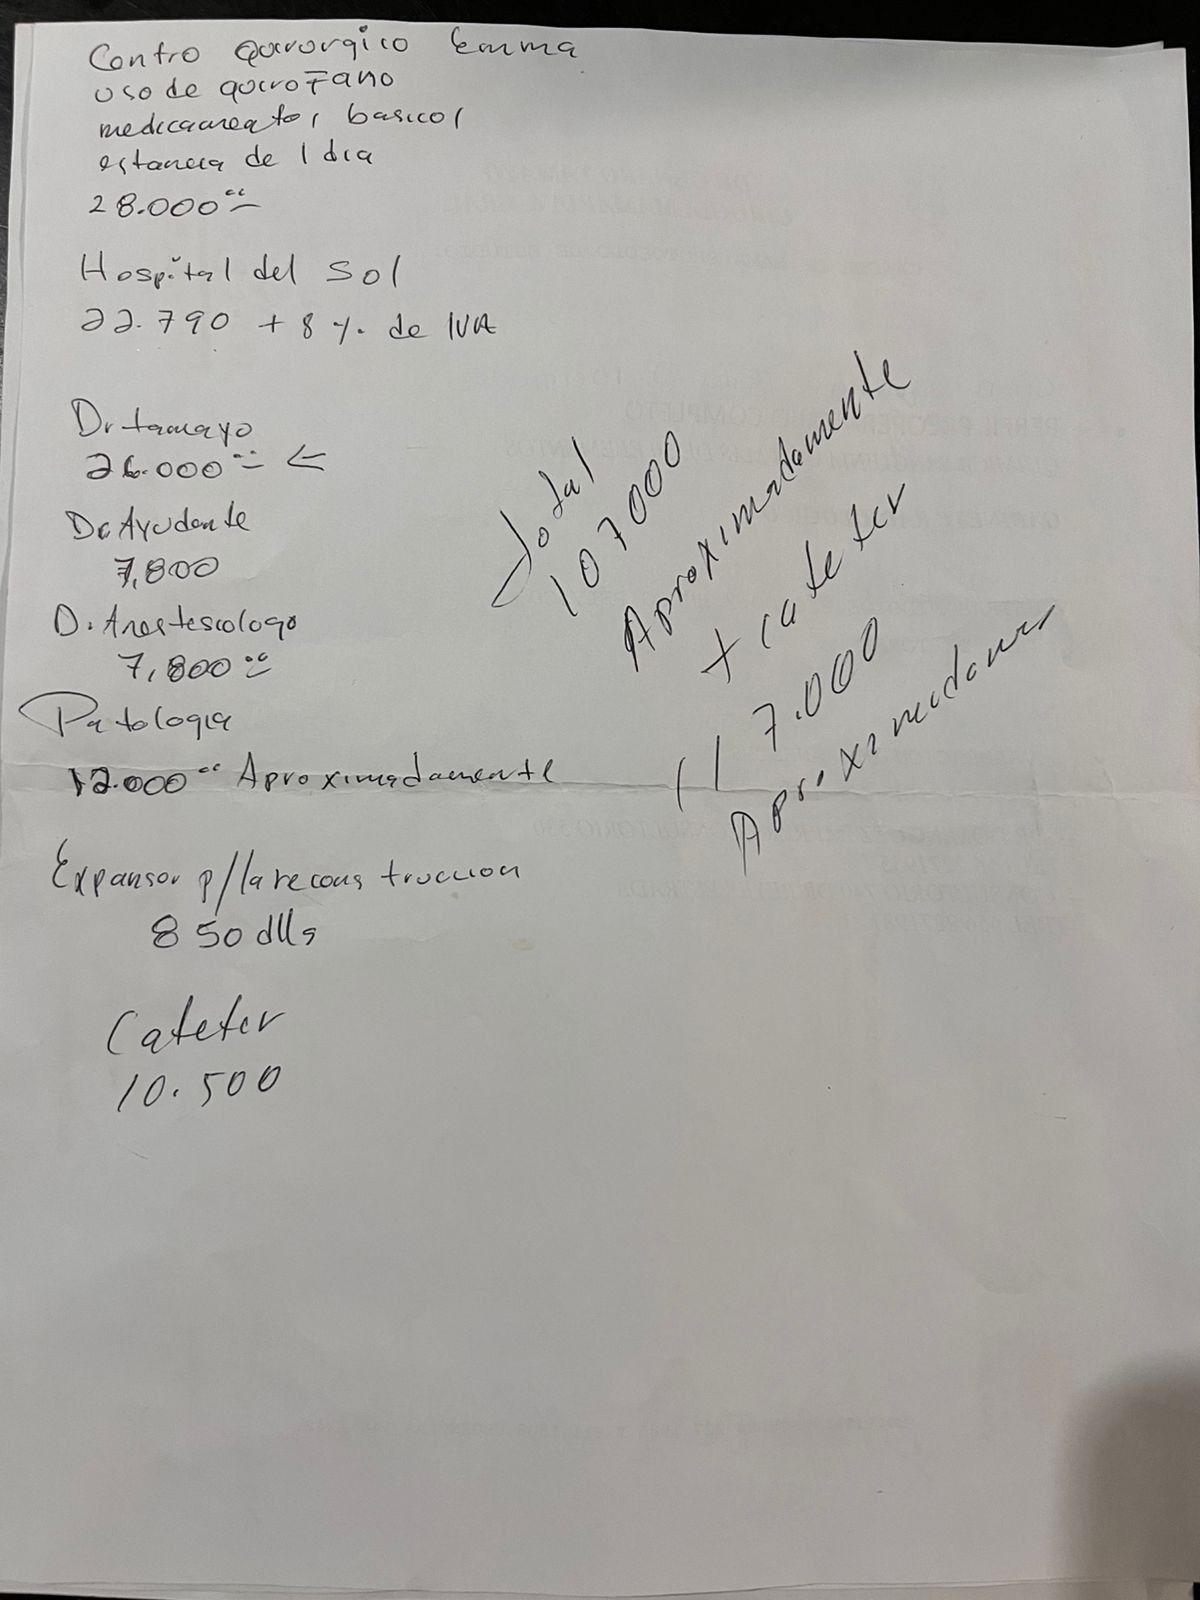 Contro Quirorgico Emma
uso de quirofano
medicamentos basicos
estancia de 1 dia
28.000°°
Hospital del Sol
22.790 + 8 %. de IVA
Dr tamayo
26.000°° ←
Dr Ayudante
7,800
D. Anestesiologo
7,800°°
Patologia
12.000°° Aproximadamente
Expansor p/la reconstruccion
850 dlls
Cateter
10.500
Total
107000
Aproximadamente
+ cateter
117.000